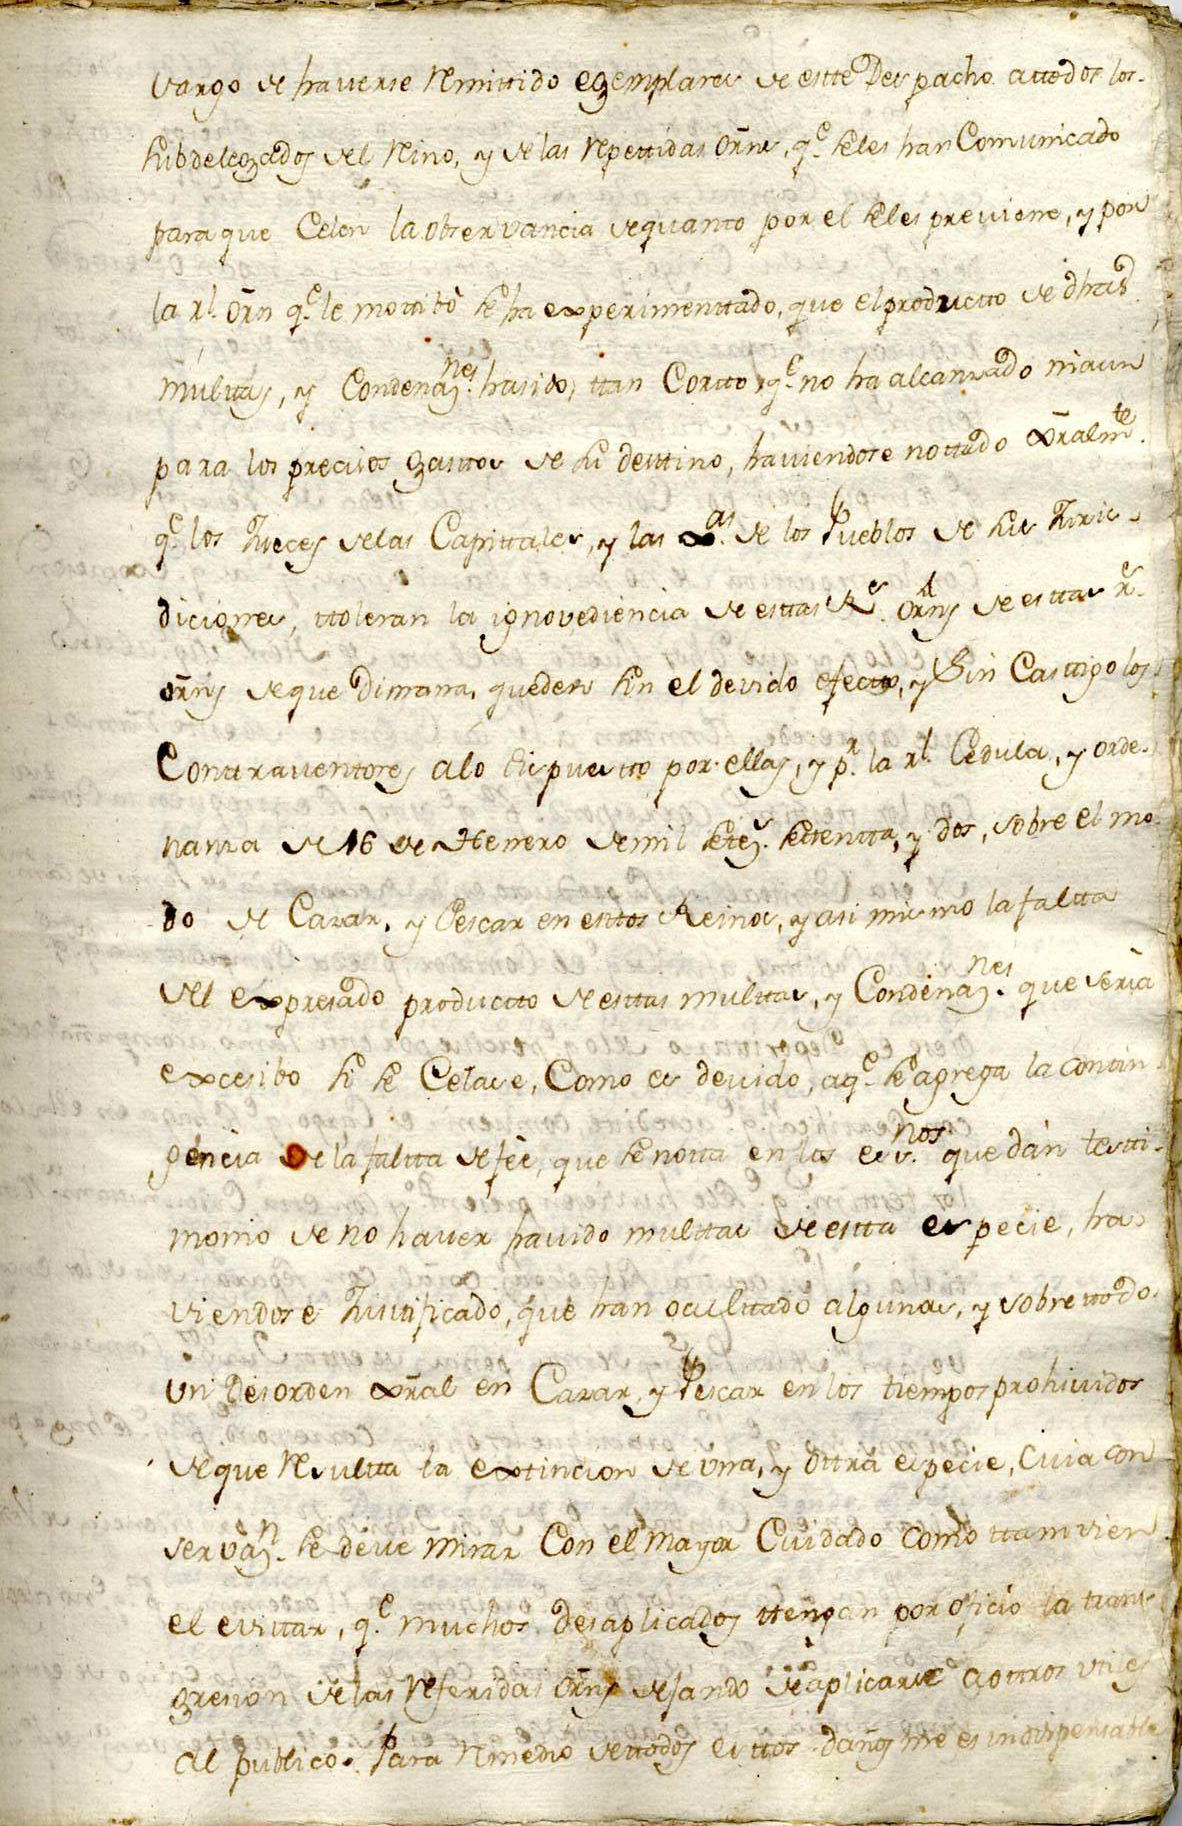 vargo de haverse Remittido egemplares de estte Despacho attodos los
Subdelegados del Reino, y de las Repettidas Orñs, q.e seles han Comunicado
para que Celen la observancia de quanto por el seles previene, y por
la rl. Orñ q.e le mottibò se ha experimenttado, que el productto de dhas
multtas, y Condenaz.nes ha sido, ttan Cortto, q.e no ha alcanzado ni aun
para los precisos gasttos de su desttino, haviendose nottado Gralm.te
q.e los Jueces delas Capittales, y las Xas. de los Pueblos de sus Juris-
diciones, ttoleran la ignovediencia de esttas Rs. Orñs de esttas rs.
orñs de que Dimana, queden sin el devido efectto, y Sin Casttigo los
Conttraventores alo dispuestto por ellas, y pr. la rl. Cedula, y orde-
nanza de 16 de Henero demil setez.s settentta, y dos, sobre el mo-
do de Cazar, y Pescar en esttos Reinos, y asi mismo la faltta
del expresado productto de esttas multtas, y Condenaz.nes que sería
excesibo si se Celase, Como es devido, aq.e se agrega la contin-
gencia de la faltta de feè, que se notta en los esv.nos que dàn testti-
monio de no haver havido multtas de estta especie, ha-
viendose Justtificado, que han oculttado algunas, y sobre ttodo
un desorden Gral en Cazar, y Pescar en los tiempos prohividos
de que Resultta la extincion de una, y ottra especie, cuia con
servaz.n se deve mirar Con el mayor Cuidado como ttamvien
el evittar, q.e muchos desaplicados ttengan por oficio la trans-
gresion delas Referidas Orñs dejando de aplicarse a ottros utiles
al publico. Para Remedio de ttodos esttos daños me es indispensable